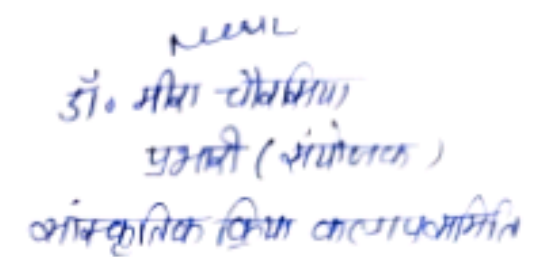 डॉ. मीना चौरसिया
प्रभारी (संयोजक)
सांस्कृतिक क्रिया कलाप समिति